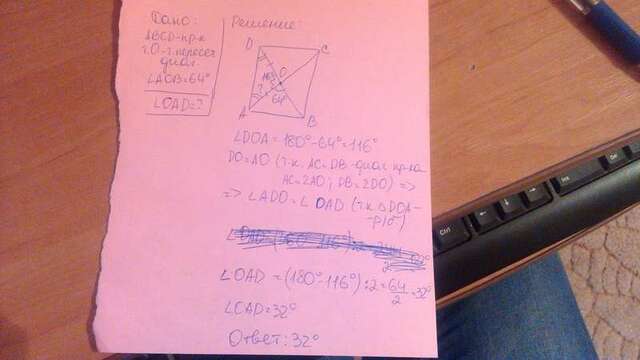 Дано:
ABCD-пр-к
т.О-т.пересеч
диаг.
∠AOB=64°
∠OAD=?
Решение:
D
C
116
O
?
64
A
B
∠DOA=180°-64°=116°
DO=AO (т.к. AC=DB-диаг пр-ка
AC=2AO; DB=2DO) =>
=> ∠ADO=∠OAD (т.к △DOA-
-р/б)
∠OAD=(180°-116°):2=64/2=32°
∠OAD=32°
Ответ: 32°
Ctrl